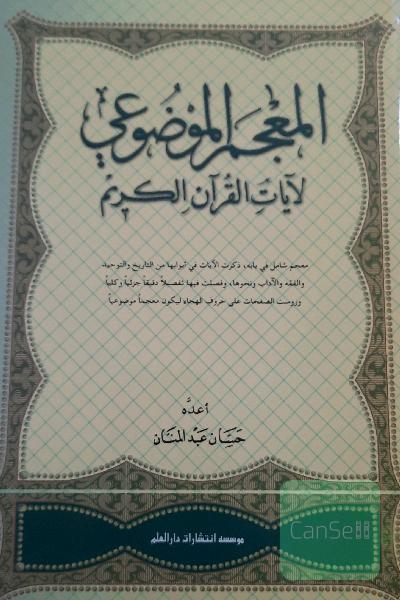 المعجم الموضوعي
لآيات القرآن الكريم
معجم شامل في بابه، ذكرت الآيات في أبوابها من التاريخ والتوحيد
والفقه والآداب ونحوها، وفصلت فيها تفصيلاً دقيقاً جزئياً وكلياً
وروست الصفحات على حروف الهجاء ليكون معجماً موضوعياً
أعدَّه
حسَّان عبد المنان
موسسه انتشارات دار العلم
CanSell